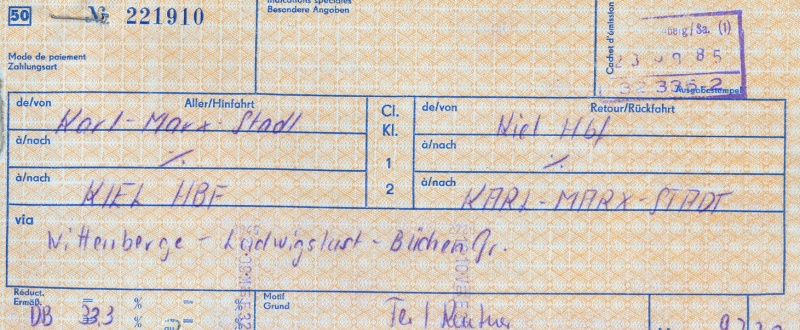 50 № 221910
Indications spéciales
Besondere Angaben
Mode de paiement
Zahlungsart
Cachet d'émission
berg/Sa. (1)
85
32 336 2
Ausgabestempel
de/von Aller/Hinfahrt Cl. de/von Retour/Rückfahrt
Karl-Marx-Stadt Kl. Kiel Hbf
à/nach 1 à/nach
·/. ·/.
à/nach 2 à/nach
KIEL HBF KARL-MARX-STADT
via
Wittenberge - Ludwigslust - Büchen Gr.
Réduct. Motif
Ermäß. = % = % Grund
DB 33,3